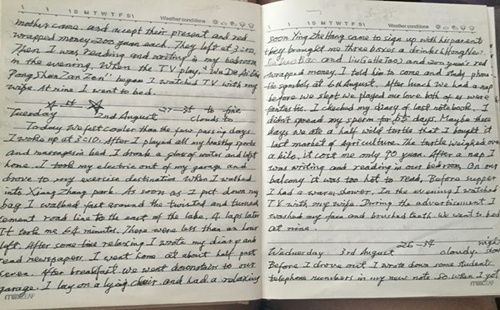 1 1 1 S M T W T F S 1 Weather conditions
mother came and accept their present and red
wrapped money 200 yuan each. They left at 3:20,
Then I was reading and writing in my bedroom
in the evening. When the TV play,
began I watched TV with my
wife. At nine I went to bed.
Tuesday 2nd August clouds to
Today. We felt cooler than the few passing days
I woke up at 3:10. After I played all my healthy sports
and managemein bed I drank a glass of water and left
home. I took my electric out of my garage and
drove to my exercise destination when I walked
into Xiang Zhang park. As soon as I put down my
bag I walked fast around the twisted and turned
cement road line to the east of the lake. 4 laps later
It took me 64 minutes. There were less than an hour
left. After some time relaxing I wrote my diary and
read newspapers. I went home at about half past
seven. After breakfast we went downstairs to our
garage. I lay on a lying chair and had a relaxing
1 1 1 S M T W T F S 1 Weather conditions
soon Ying Zhe Hang came to sign up with his parents
They brought me three boxes a drinks
and 200 yuan's red
wrapped money. I told him to come and study phone-
tic symbols at 6 August. After lunch we had a nap
before we slept we played our love both of us were
fantastic. I checked my diary of last notebook, I
didn't spread my sperm for 65 days. Maybe these
days we ate a half wild turtle that I bought it
last market of agriculture. The turtle weighed over
a kilo, it cost me only 90 yuan. After a nap I
was writing and reading in our bedroom. On our
balcony it was too hot to read. Before supper
I had a warm shower. In the evening I watched
TV with my wife. During the advertisement I
washed my face and brushed teeth. We went to bed
at nine.
Wednesday 3rd August cloudy
Before I drove out I wrote down some students'
telephone numbers in my new note. So when I got